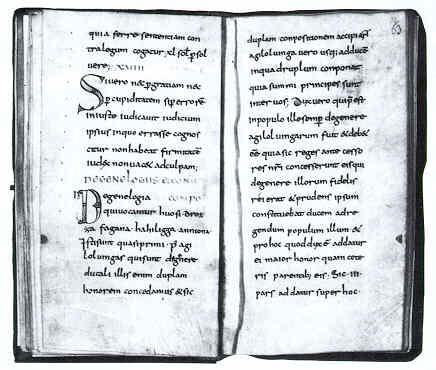 quia ferre sententiam con
tra legum cogatur xl sol p sol
vere; XVIIII
Si vero nec p gratiam nec
p cupiditatem sed p errorē
iniuste iudicavit iudicium
ipsius in quo errasse cognos
citur non habeat firmitatē
iudex non vacet ad culpam;
DE GENELOGIIS ET EORUM
De genelogia CONPO
qui vocantur huosi droz
za fagana hahiligga anniona
Isti sunt quasi primi p agi
lolvingas qui sunt de genere
ducali illis enim duplam
honorem concedamus & sic
63
duplam conpositionem accipiant
agilolvinga vero usq; ad ducē
in quadruplum conponat
quia summi principes sunt
inter vos; Dux vero qui p est
in populo ille semp de genere
agilolvingarum fuit & deb&
esse quia sic reges ante cesso
res nr̄i concesserunt eis qui
de genere illorum fidelis
rei erat & prudens ipsum
constituebat ducem ad re
gendum populum illum &
pro hoc quod dux ē addatur
ei maior honor quam cete
ris parentib; eis. Sic III
pars addatur super hoc.